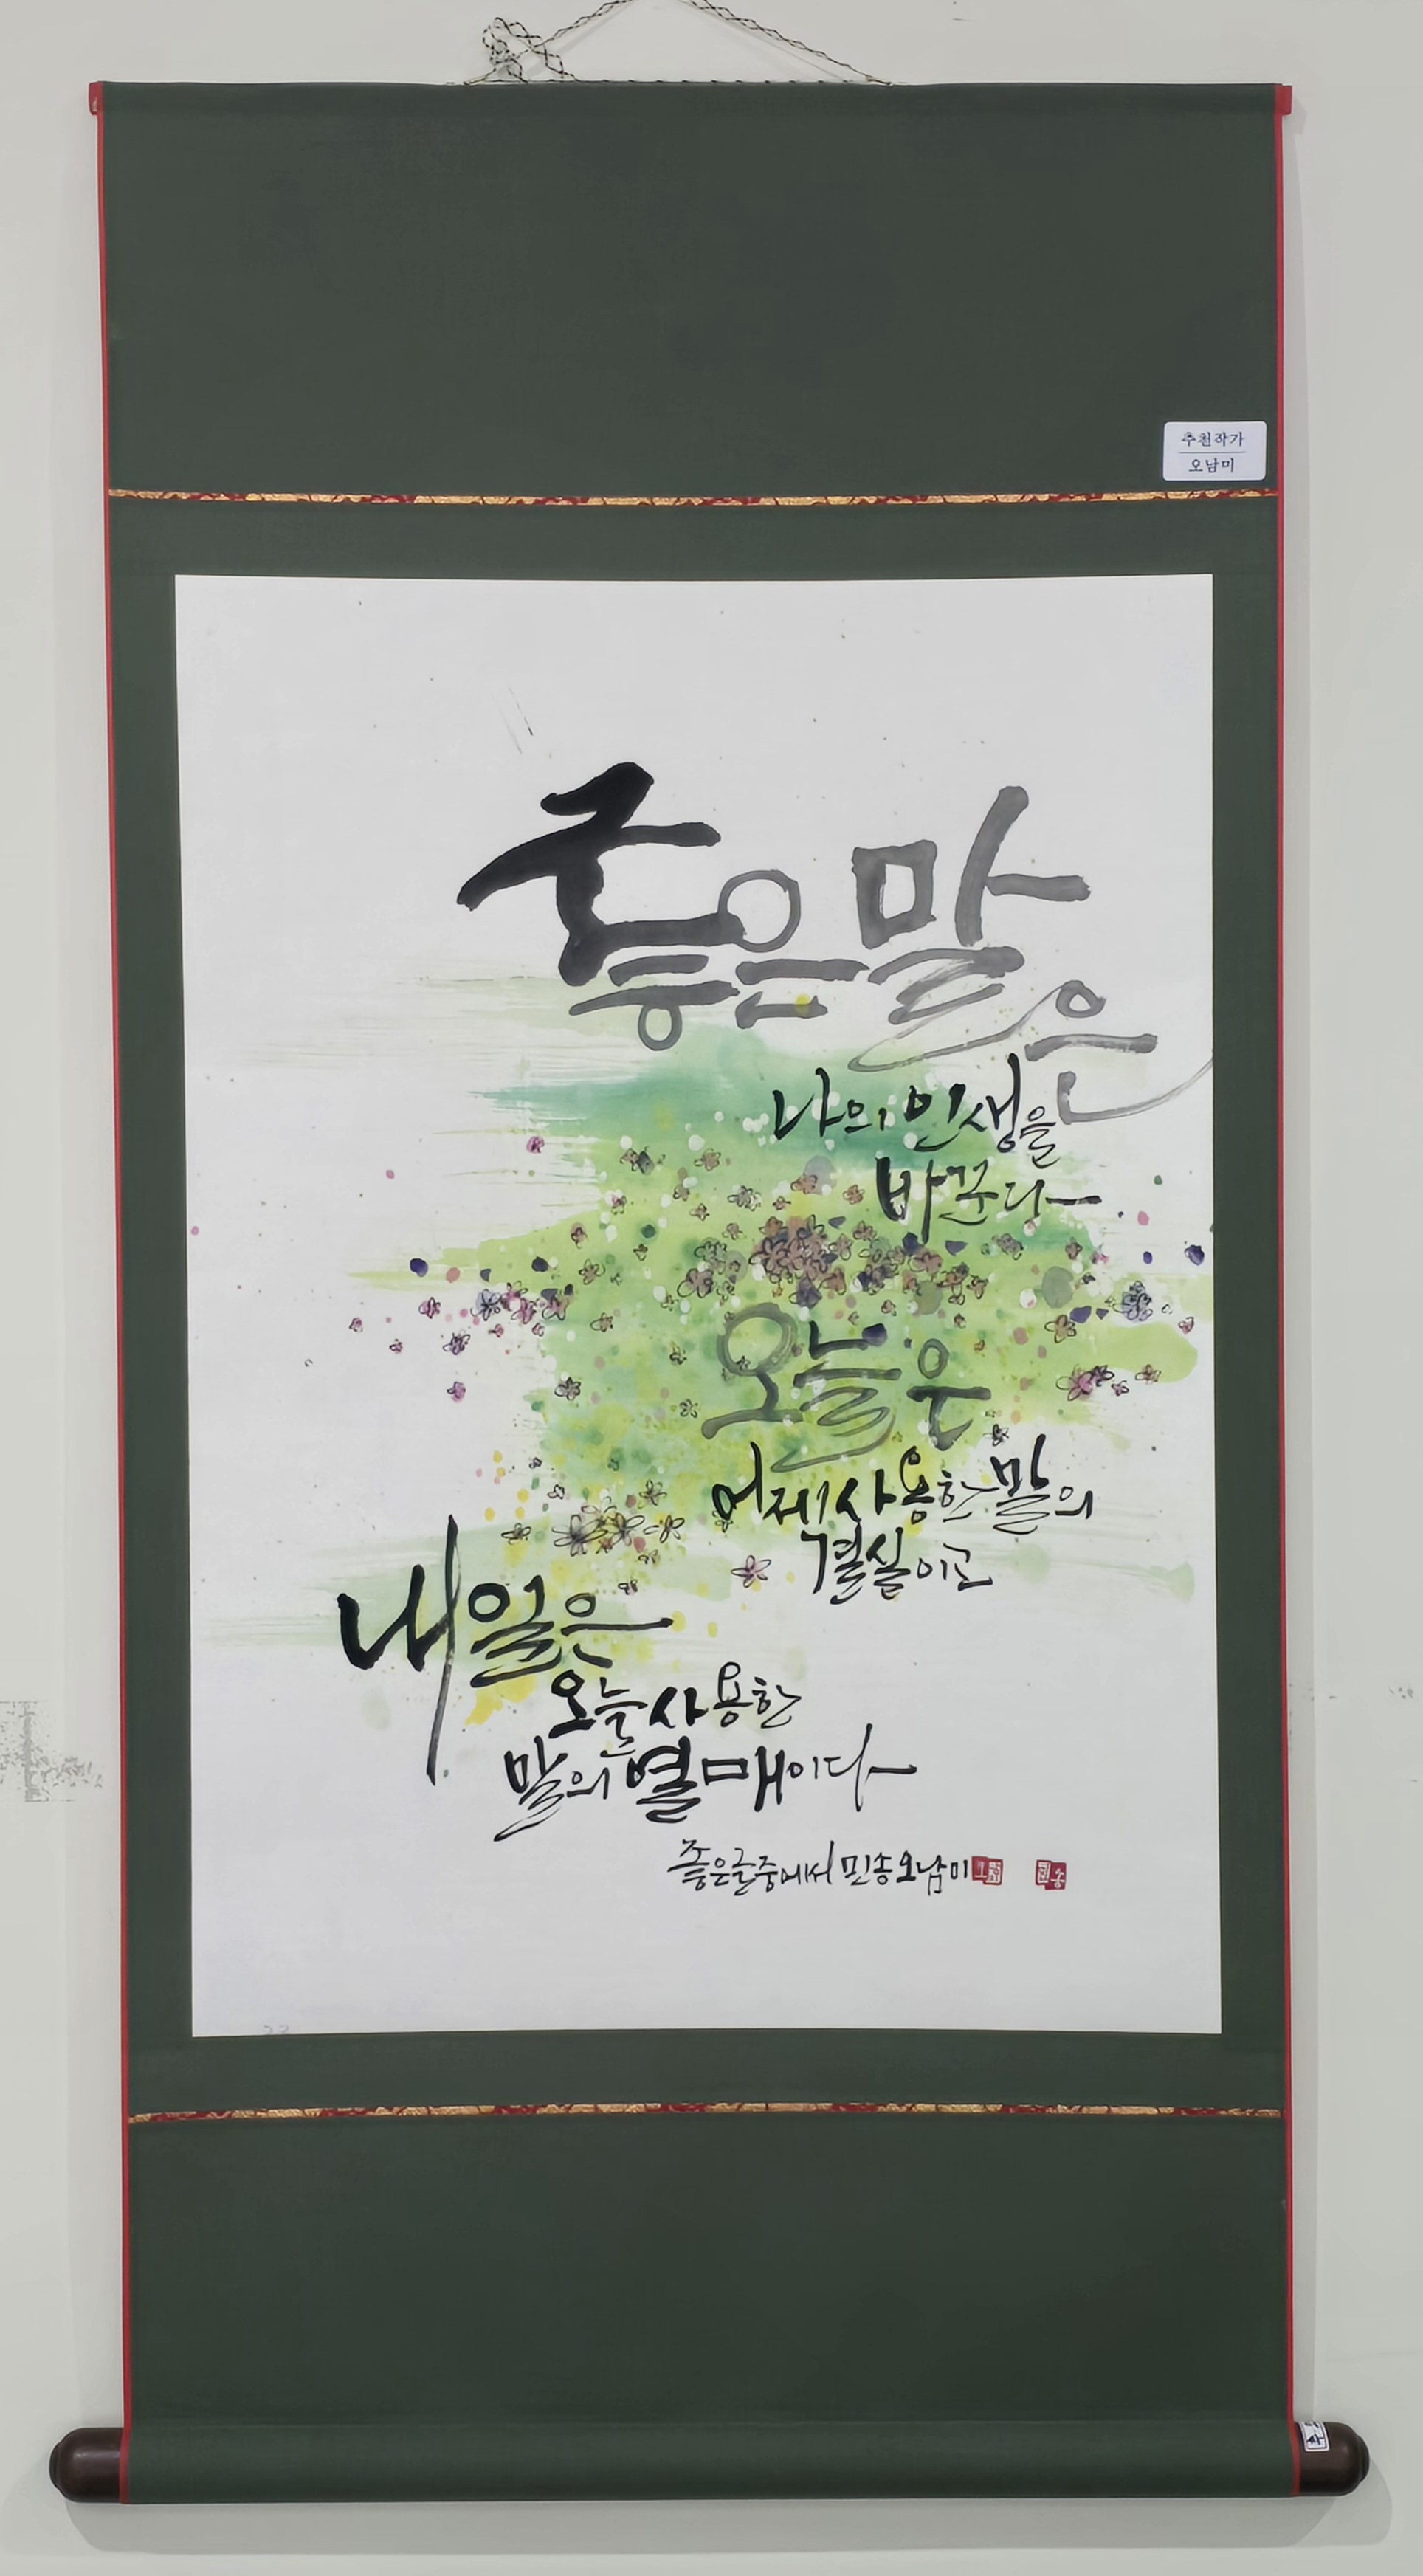 추천작가
오남미
좋은말은
나의 인생을
바꾼다
오늘은
어제 사용한 말의
결실이고
내일은
오늘 사용한
말의 열매이다
좋은글중에서 민송 오남미